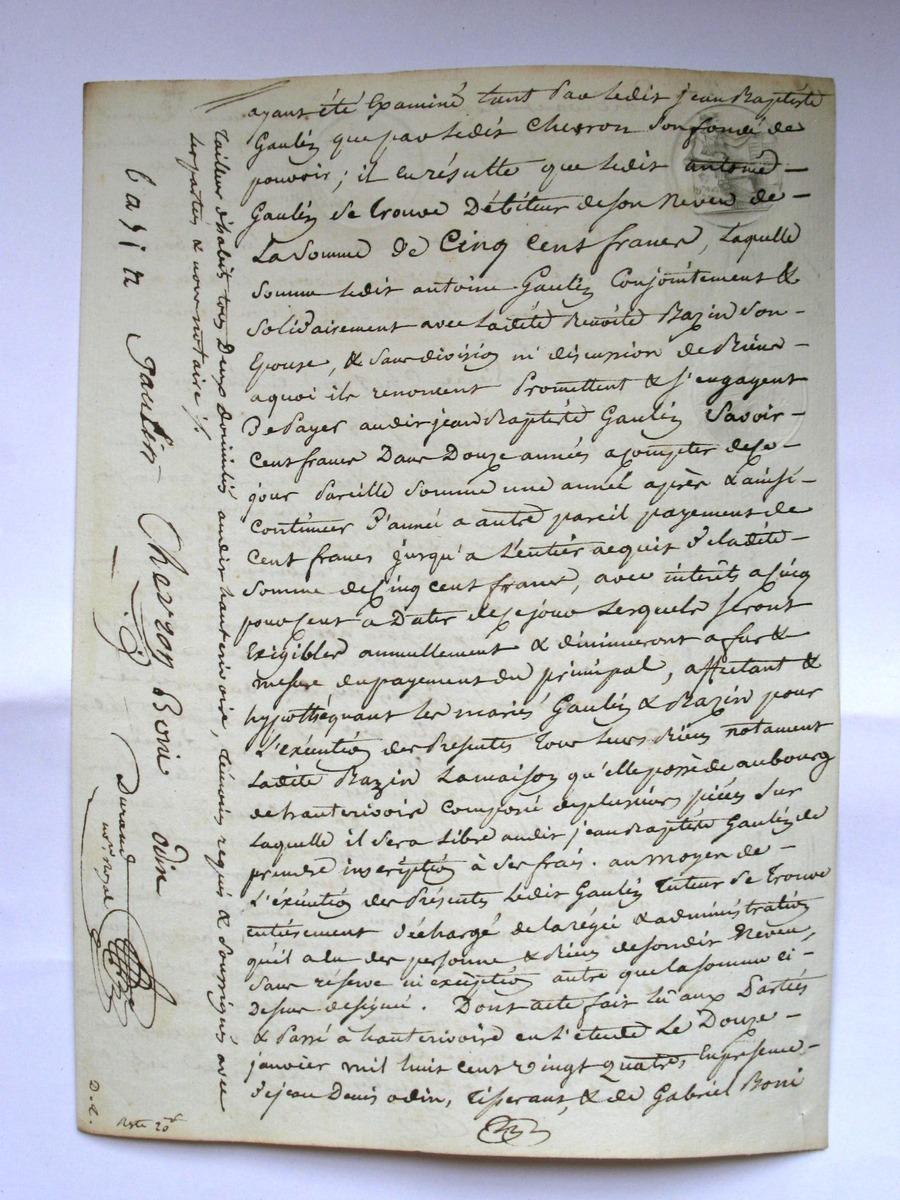 ayant été Examiné tant Par ledit jean Baptiste
Gaulin que par ledit Chevron Son fondé de
pouvoir ; il en résulte que ledit antoine –
Gaulin Se trouve Débiteur de son Neveu de –
La Somme De Cinq Cent francs, Laquelle
Somme ledit antoine Gaulin Conjointement &
Solidairement avec Ladite Benoite Bazin Son –
Epouse, & Sans division ni discussion de Biens –
aquoi ils renoncent Promettent & s'engagent
De Payer audit jean Baptiste Gaulin Savoir –
Cent francs Dans Douze années a Compter de Ce –
jour Pareille Somme une année après & ainsi –
Continuer D'année a autre pareil payement de
Cent francs jusqu'a L'entier acquit de ladite –
Somme de Cinq cent francs, avec intérêts a Cinq
pour Cent a Dater de Ce jour Lesquels Seront
Exigibles annuellement & diminueront a fur &
mesure du payement du principal, affectant &
hypothéquant les mariés Gaulin & Bazin pour
L'exécution des Présentes Tous Leurs Biens notament
Ladite Bazin La maison qu'elle possède au bourg
de hauterivoire Composé de plusieurs pièces Sur
Laquelle il Sera Libre audit jean Baptiste Gaulin de
prendre inscription à Ses frais. au moyen de –
L'exécution des Présentes Ledit Gaulin Tuteur Se Trouve
entièrement Déchargé de la régie & administration
qu'il a Eu des personne & Biens de Sondit Neveu,
Sans réserve ni exception autre que la Somme ci –
Dessus designé. Dont acte fait lu aux Parties
& Passé à hauterivoire en L'étude Le Douze –
janvier mil huit cent vingt quatre, En présence –
de jean Denis odin, Tisserant, & de Gabriel Boni
Tailleur d'habits tous Deux domiciliés audit hauterivoire, témoins requis & Soussignés avec
les parties & nous notaire ;/.
bazin gaulin Chevron Boni odin
Durand
not. royal
D. L.
Reste 20